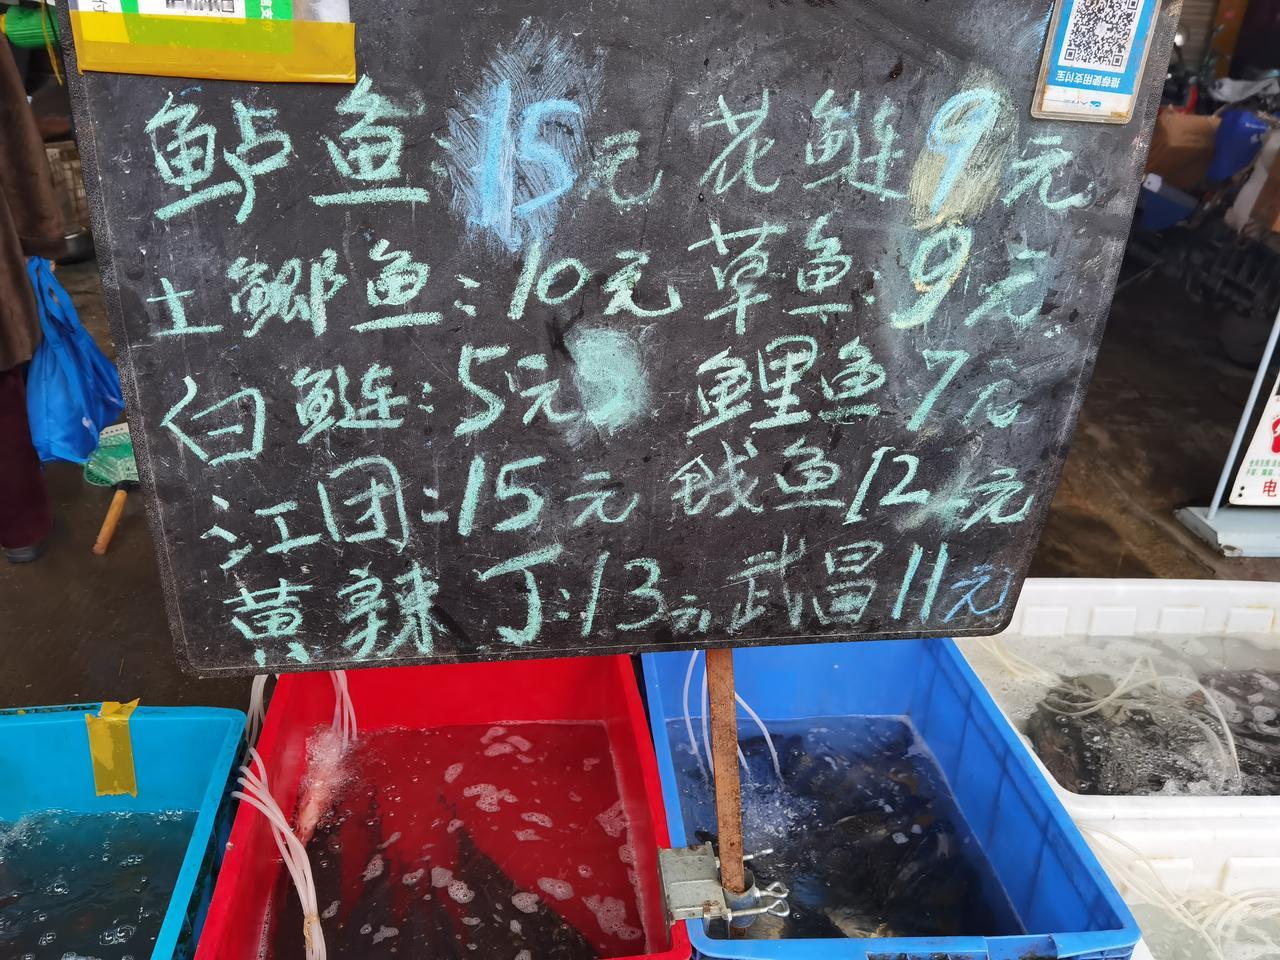 鲇鱼:15元 花鲢9元
土鲫鱼:10元 草鱼:9元
白鲢:5元 鲤鱼7元
江团:15元 鱤鱼12元
黄辣丁:13元 武昌11元
推荐使用支付宝